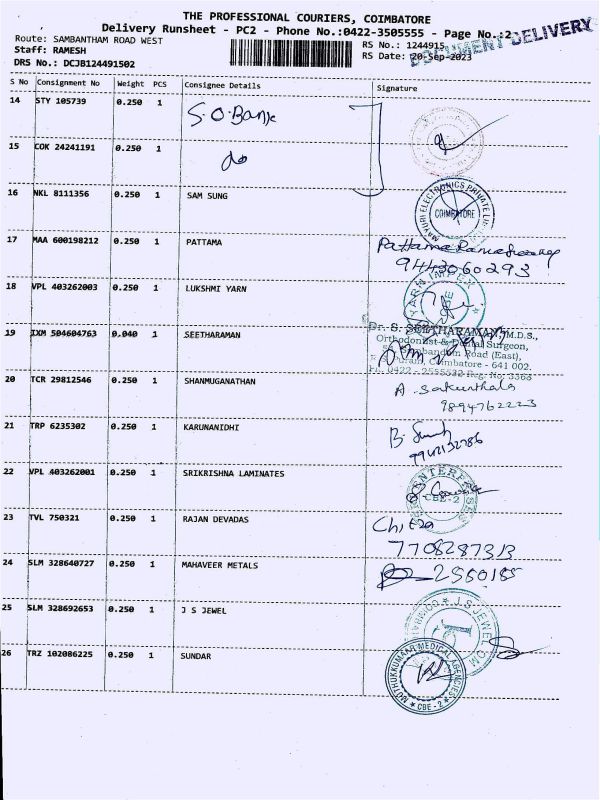 THE PROFESSIONAL COURIERS, COIMBATORE
Delivery Runsheet - PC2 - Phone No.:0422-3505555 - Page No.:2
DOCUMENT DELIVERY
Route: SAMBANTHAM ROAD WEST
RS No.: 1244915
Staff: RAMESH
RS Date: 20-Sep-2023
DRS No.: DCJB124491502
S No Consignment No Weight PCS Consignee Details Signature
14 STY 105739 0.250 1 S.O.Bank
15 COK 24241191 0.250 1 do
16 NKL 8111356 0.250 1 SAM SUNG
MAYURI ELECTRONICS PRIVATE
COIMBATORE
17 MAA 600198212 0.250 1 PATTAMA Pattama
9443060293
18 VPL 403262003 0.250 1 LUKSHMI YARN
YARN IMPEX
19 IXM 504604763 0.040 1 SEETHARAMAN
Dr. S. SEETHARAMAN, M.D.S.,
Orthodontist & Dental Surgeon,
Road (East),
Coimbatore - 641 002.
20 TCR 29812546 0.250 1 SHANMUGANATHAN A. Sakunthala
9894762223
21 TRP 6235302 0.250 1 KARUNANIDHI B.
22 VPL 403262001 0.250 1 SRIKRISHNA LAMINATES
ENTERPRISES
CBE-2
23 TVL 750321 0.250 1 RAJAN DEVADAS Chitra
7708287313
24 SLM 328640727 0.250 1 MAHAVEER METALS 2560185
25 SLM 328692653 0.250 1 J S JEWEL
J.S. JEWEL
26 TRZ 102086225 0.250 1 SUNDAR
MUTHUKKUMAAR MEDICAL AGENCIES
CBE - 2